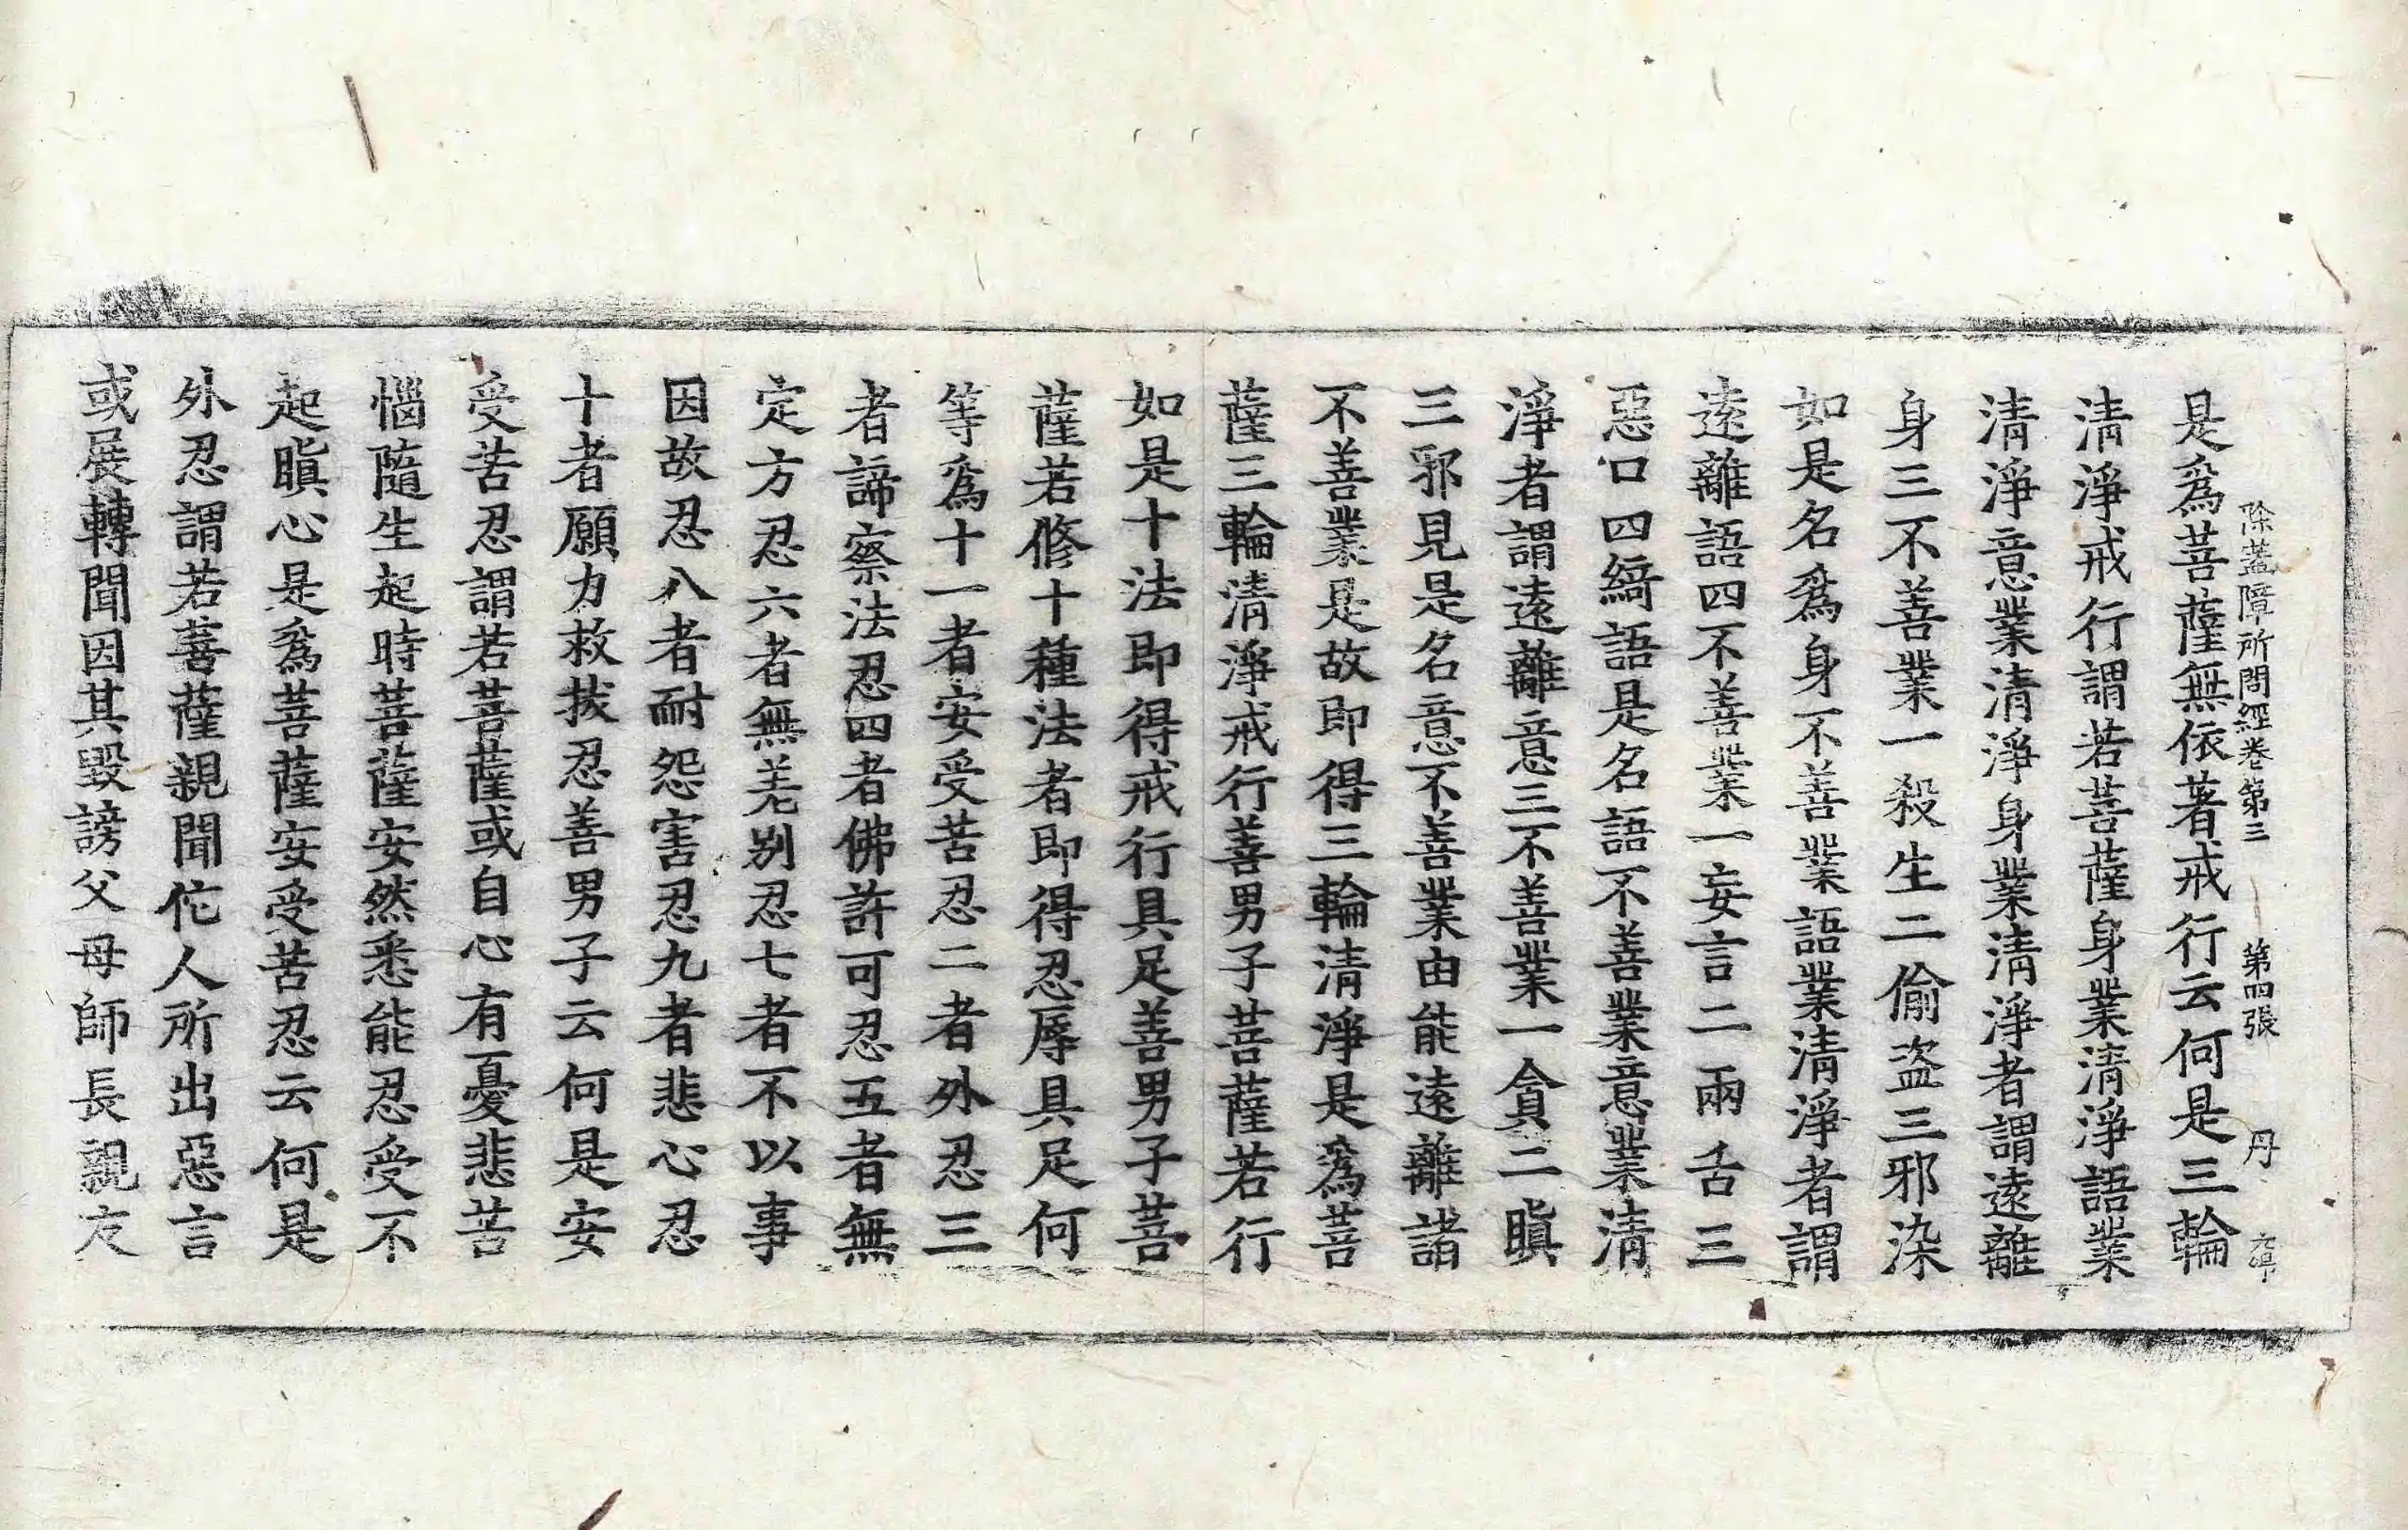 除蓋障所問經卷第三 第四張 丹
是爲菩薩無依著戒行云何是三輪
清淨戒行謂若菩薩身業清淨語業
清淨意業清淨身業清淨者謂遠離
身三不善業一殺生二偷盗三邪染
如是名爲身不善業語業清淨者謂
遠離語四不善業一妄言二兩舌三
惡口四綺語是名語不善業意業清
淨者謂遠離意三不善業一貪二瞋
三邪見是名意不善業由能遠離諸
不善業是故即得三輪清淨是爲菩
薩三輪清淨戒行善男子菩薩若行
如是十法即得戒行具足善男子菩
薩若修十種法者即得忍辱具足何
等爲十一者安受苦忍二者外忍三
者諦察法忍四者佛許可忍五者無
定方忍六者無差别忍七者不以事
因故忍八者耐怨害忍九者悲心忍
十者願力救拔忍善男子云何是安
受苦忍謂若菩薩或自心有憂悲苦
惱隨生起時菩薩安然悉能忍受不
起瞋心是爲菩薩安受苦忍云何是
外忍謂若菩薩親聞佗人所出惡言
或展轉聞因其毀謗父母師長親友